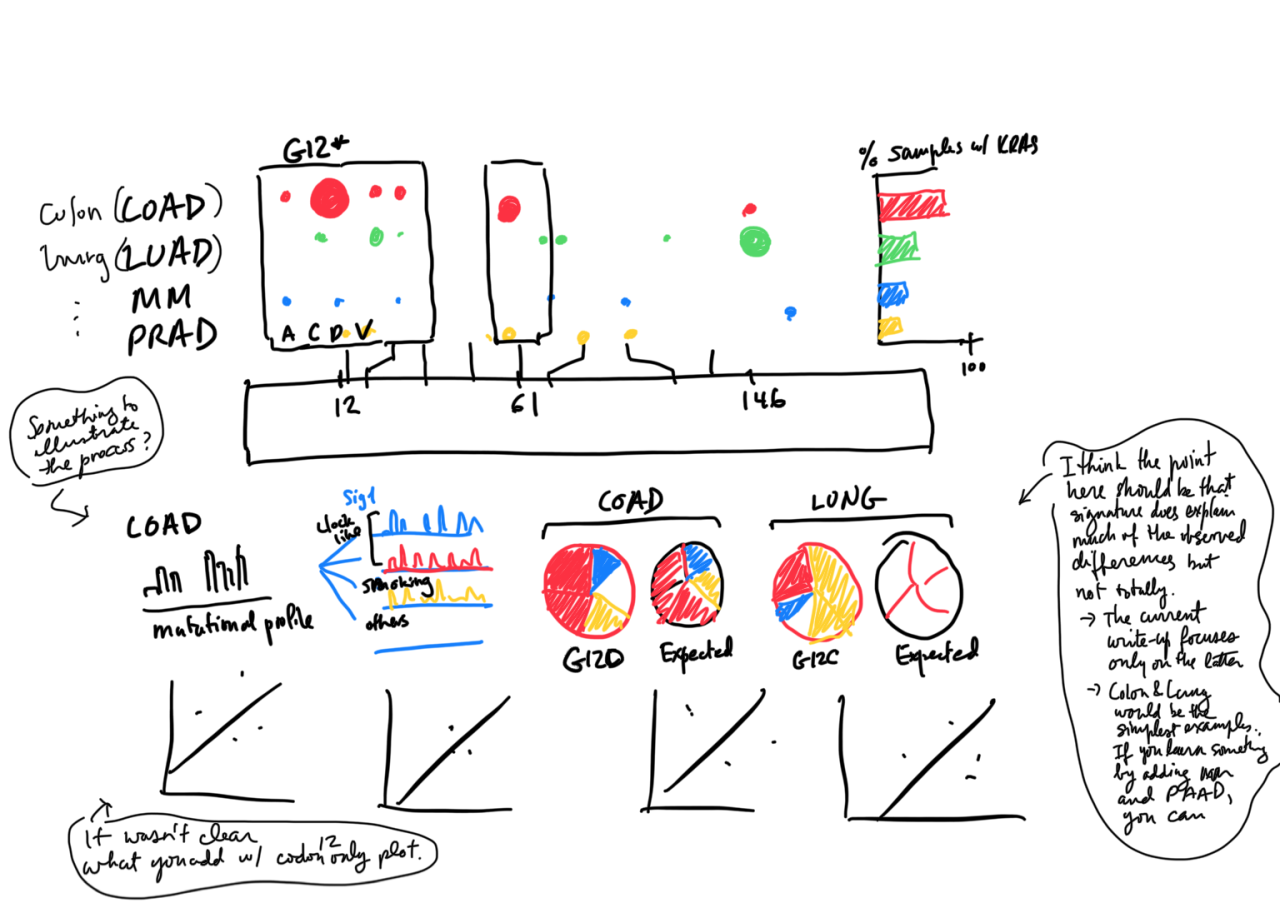 G12*
% samples w/ KRAS
Colon (COAD)
Lung (LUAD)
MM
PRAD
A C D V
100
12
61
146
Something to
illustrate
the process?
COAD
mutational profile
Sig1
clock
like
smoking
others
COAD
G12D
Expected
LUNG
G12C
Expected
I think the point
here should be that
signature does explain
much of the observed
differences but
not totally.
→ The current
write-up focuses
only on the latter
→ Colon & Lung
would be the
simplest examples.
If you learn something
by adding MM
and PAAD,
you can
It wasn't clear
what you add w/ codon 12 only plot.